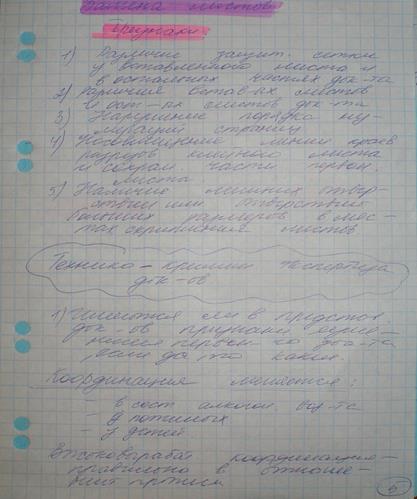 Замена листов
Признаки
1) Различие защит. сетки
у вставленного листа и
в остальных частях док-та
2) Различия вставл-ых листов
и ост-ых листов док-та
3) Нарушение порядка ну-
мерации страниц
4) Несовмещение линии краев
разреза листа
и сохран. части первон.
листа
5) Наличие лишних отвер-
стий или отверстия
больших размеров в мес-
тах скрепления листов
Технико-кримин экспертиза
док-ов
1) Имеются ли в представ.
док-ов признаки изме-
нения первон-го док-та
если да то какой.
Координация меняется:
- в сост. алкогол.
- У пожилых
- У детей
Высоковыработ координация-
правильно в отноше-
нии прописи
5